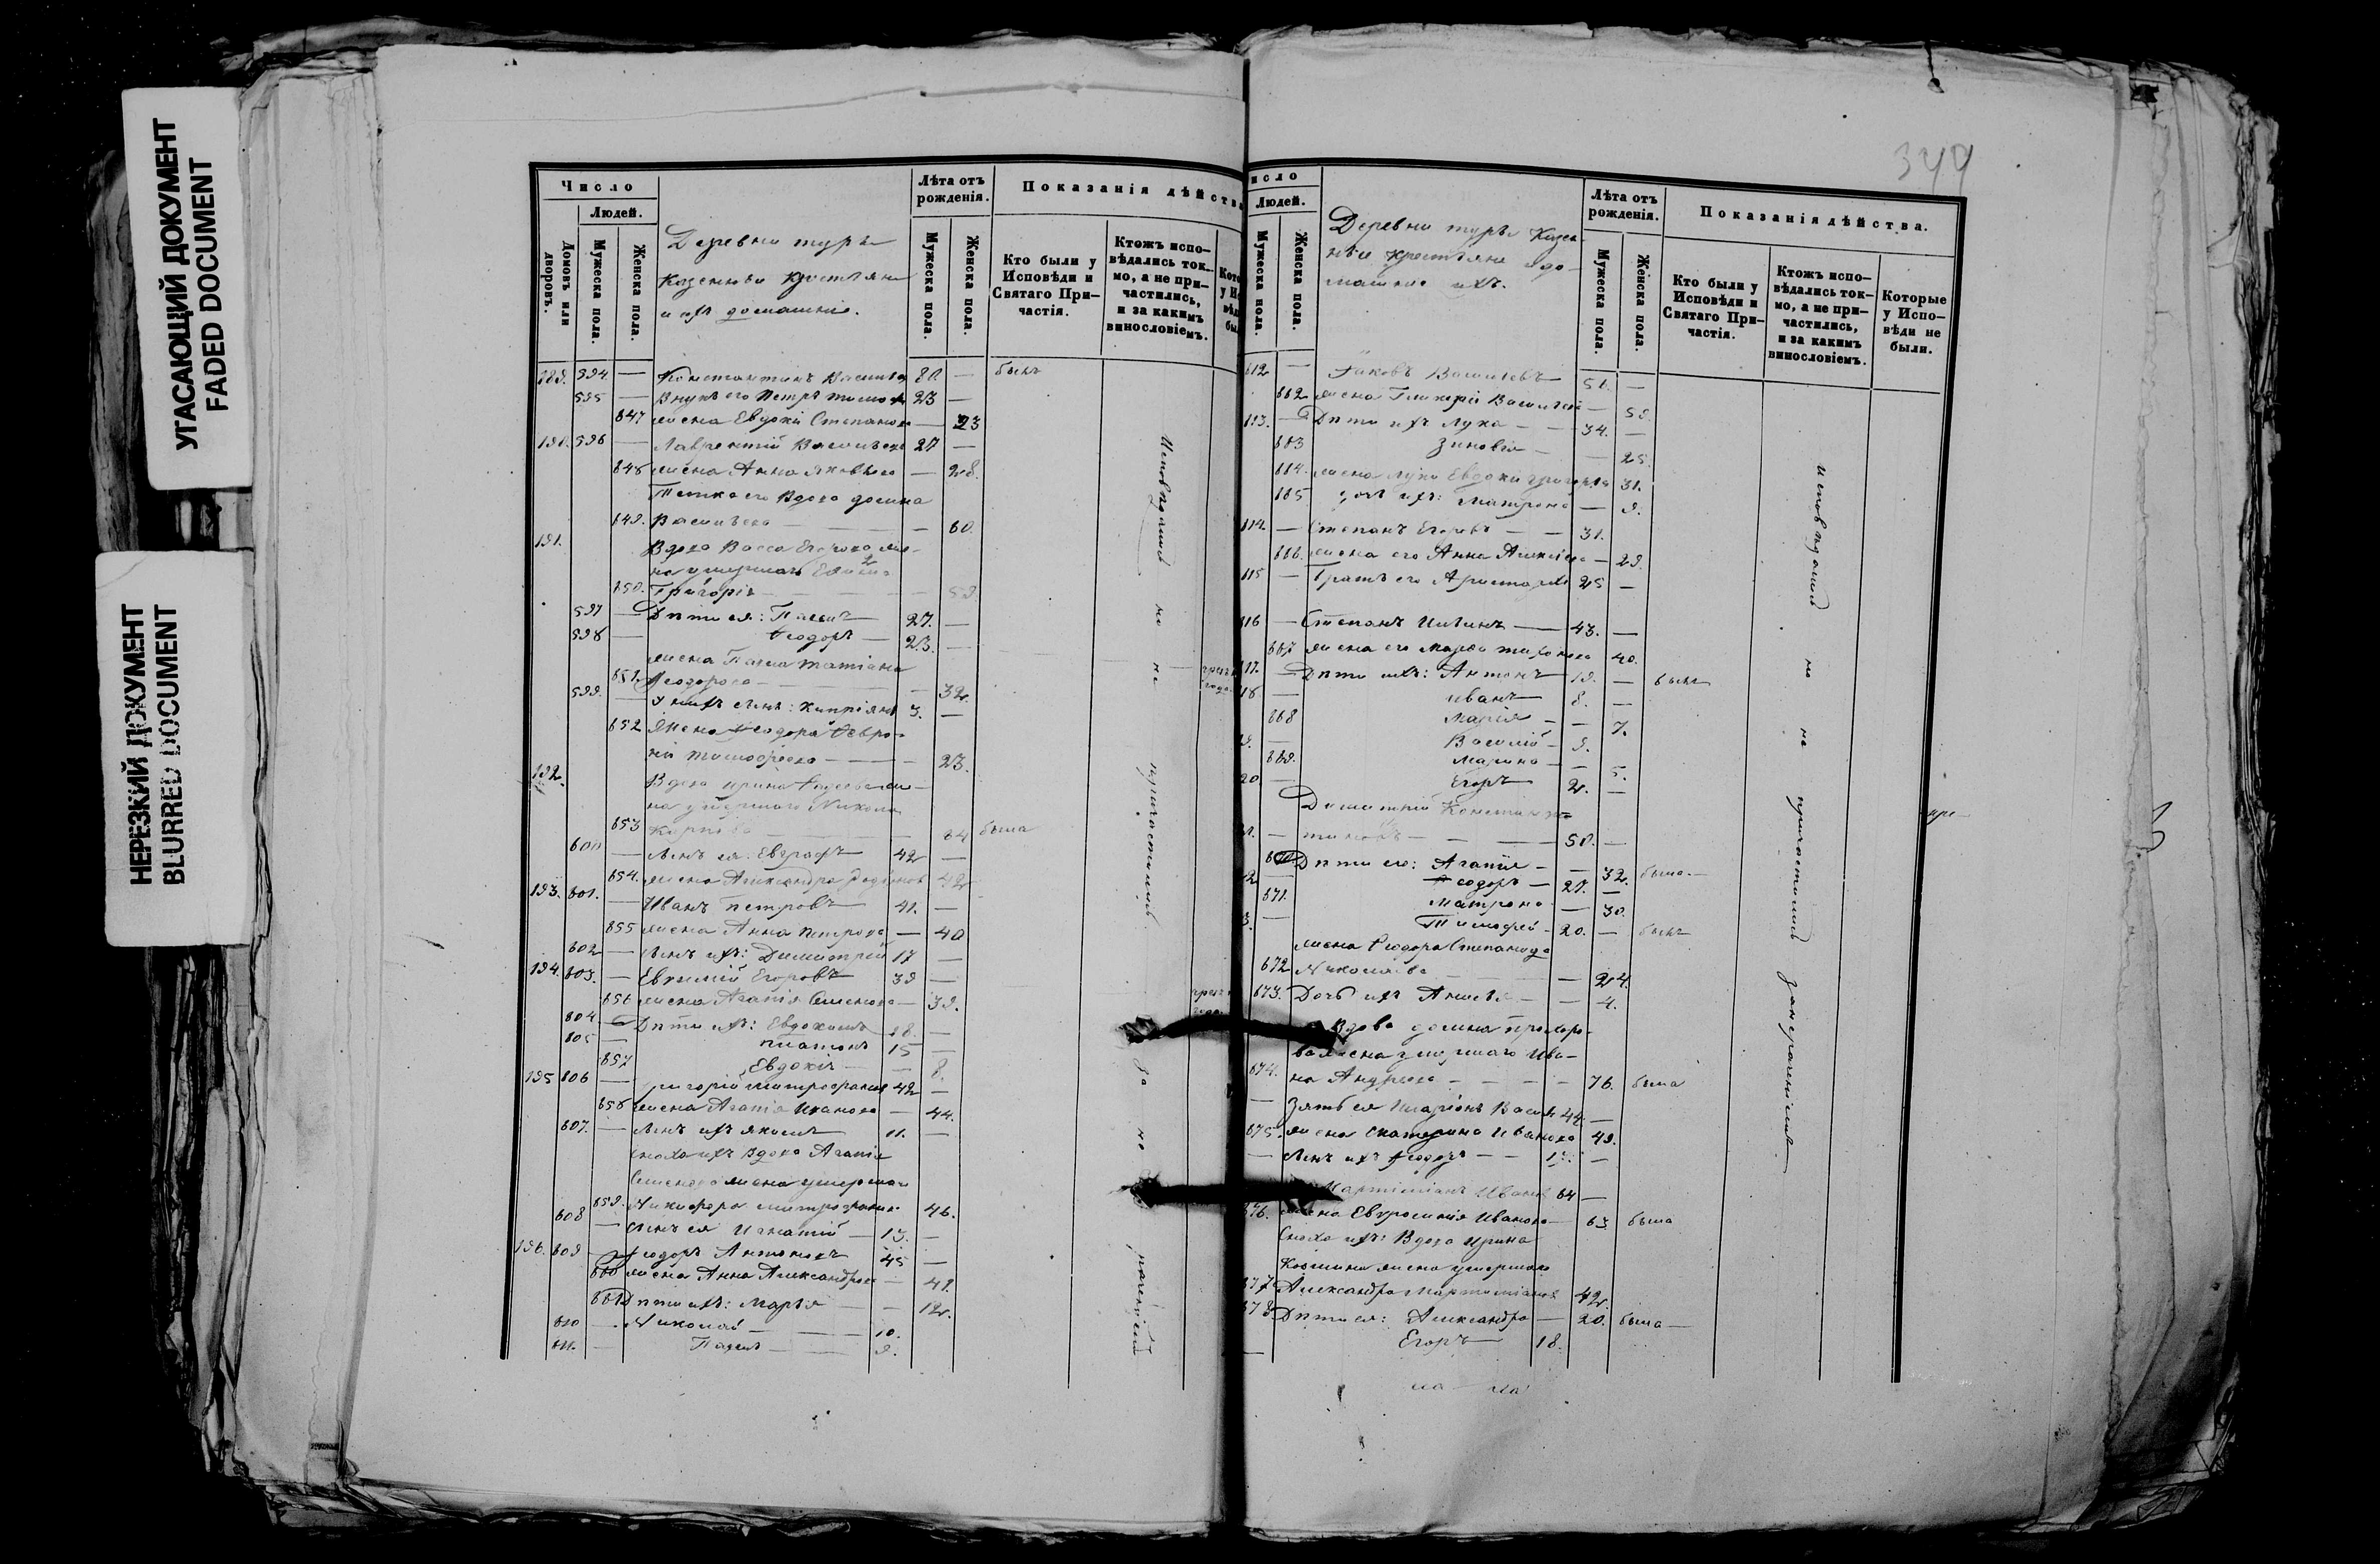 УГАСАЮЩИЙ ДОКУМЕНТ
FADED DOCUMENT
НЕРЕЗКИЙ ДОКУМЕНТ
BLURRED DOCUMENT
Число
Людей.
Домовъ или дворовъ.
Мужеска пола.
Женска пола.
Деревни туръ
казенныи крестьяне
и ихъ домашніе.
Лѣта отъ рожденія.
Мужеска пола.
Женска пола.
Показанія дѣйства
Кто были у Исповѣди и Святаго При-
частія.
Ктожъ испо-
вѣдались ток-
мо, а не при-
частились,
и за какимъ
винословіемъ.
189. 594. — Константинъ 80. — былъ
595 — Внукъ его Петръ 23 —
647 жена Евдокія Степанова — 23
190. 596 — Лаврентій Васильевъ 27 —
648 жена Анна Яковлева — 28.
Тетка его Вдова домна
649. Васильева — 60.
191. Вдова Васса Егорова же-
на умершаго
650. Григорія — 59.
597 — Дѣти ея: Павелъ 27. —
598 — Ѳеодоръ — 23. —
жена Павла татіана
651. Ѳеодорова — 32.
599. — У нихъ сынъ: Кипріянъ 3. —
652 Жена Ѳеодора Февро-
нія тимоѳеева — 23.
192. Вдова ирина
на умершаго Никола
653 Карпова — 64 была
600 — сынъ ея: Евграфъ 42 —
654. жена Александра Родіонова 42
193. 601. — Иванъ петровъ 41. —
655 жена Анна Петрова — 40
602 — сынъ ихъ: Димитрій 17 —
194. 603. — Евѳимій Егоровъ 39 —
656 жена Агапія Семенова — 39.
604. — Дѣти ихъ: Евдокимъ 18. —
605 — платонъ 15 —
657 Евдокія — 8.
195 606 — григорій митрофановъ 42 —
658 жена Агапія Иванова — 44.
607. — сынъ ихъ якимъ 11. —
сноха ихъ Вдова Агапія
Семенова жена умершаго
659. Никифора митрофанова 46.
608 — сынъ ея Игнатій — 13. —
196. 609 — Ѳеодоръ Антоновъ 45 —
660 жена Анна Александрова — 41.
661 Дѣти ихъ: Марія — 12.
610 — Николай — 10.
611. — Павелъ — 9.
Исповѣдались но не причастились за не
344
Людей.
Мужеска пола.
Женска пола.
Деревни туръ Казен-
ныи крестьяне и до-
машніе ихъ.
Лѣта отъ рожденія.
Мужеска пола.
Женска пола.
Показанія дѣйства.
Кто были у Исповѣди и Святаго При-
частія.
Ктожъ испо-
вѣдались ток-
мо, а не при-
частились,
и за какимъ
винословіемъ.
Которые у Испо-
вѣди не
были.
612 — Яковъ Васильевъ 51. —
662 жена Гликерія Васильева — 59.
113. — Дѣти ихъ Лука — 34. —
663 Зиновія — 25.
664. жена Луки Евдокія григорьева 31.
665 дочь ихъ: Матрона — 9.
114. — Степанъ Егоровъ — 31.
666. жена его Анна Алексѣева — 29.
115 — Братъ его Аристархъ 25 —
116 — Степанъ Ильинъ — 43. —
667 жена его Марѳа тихонова 40.
117. — Дѣти ихъ: Антонъ 19. — былъ
18 — иванъ 8. —
668 Марія — 7.
9. — Василій — 9.
669. Марина — 5.
20 — Егоръ 2. —
Димитрій Констан-
21. — тиновъ — 50. —
670. Дѣти его: Агапія — 32. была —
2 — Ѳеодоръ — 27. —
671. Матрона — 30.
3. — Тимофей — 20. — былъ
жена Ѳеодора Степанида
672 Николаева — 24.
673. Дочь ихъ Анисія — 4.
Вдова домна прохоро-
ва жена умершаго Ива-
674. на Андреева — 76. была
— Зять ея Иларіонъ Васил 44. —
675. жена Екатерина Иванова 49.
— Сынъ ихъ Ѳеодоръ — 15. —
Мартиніанъ Иванов 64 —
676. жена Евфросинія Иванова — 63 была
Сноха ихъ: Вдова Ирина
Козмина жена умершаго
677 Александра Мартиніанова 42.
678 Дѣти ея: Александра — 20. была —
— Егоръ 18.
исповѣдались но не причастились за нераченіемъ